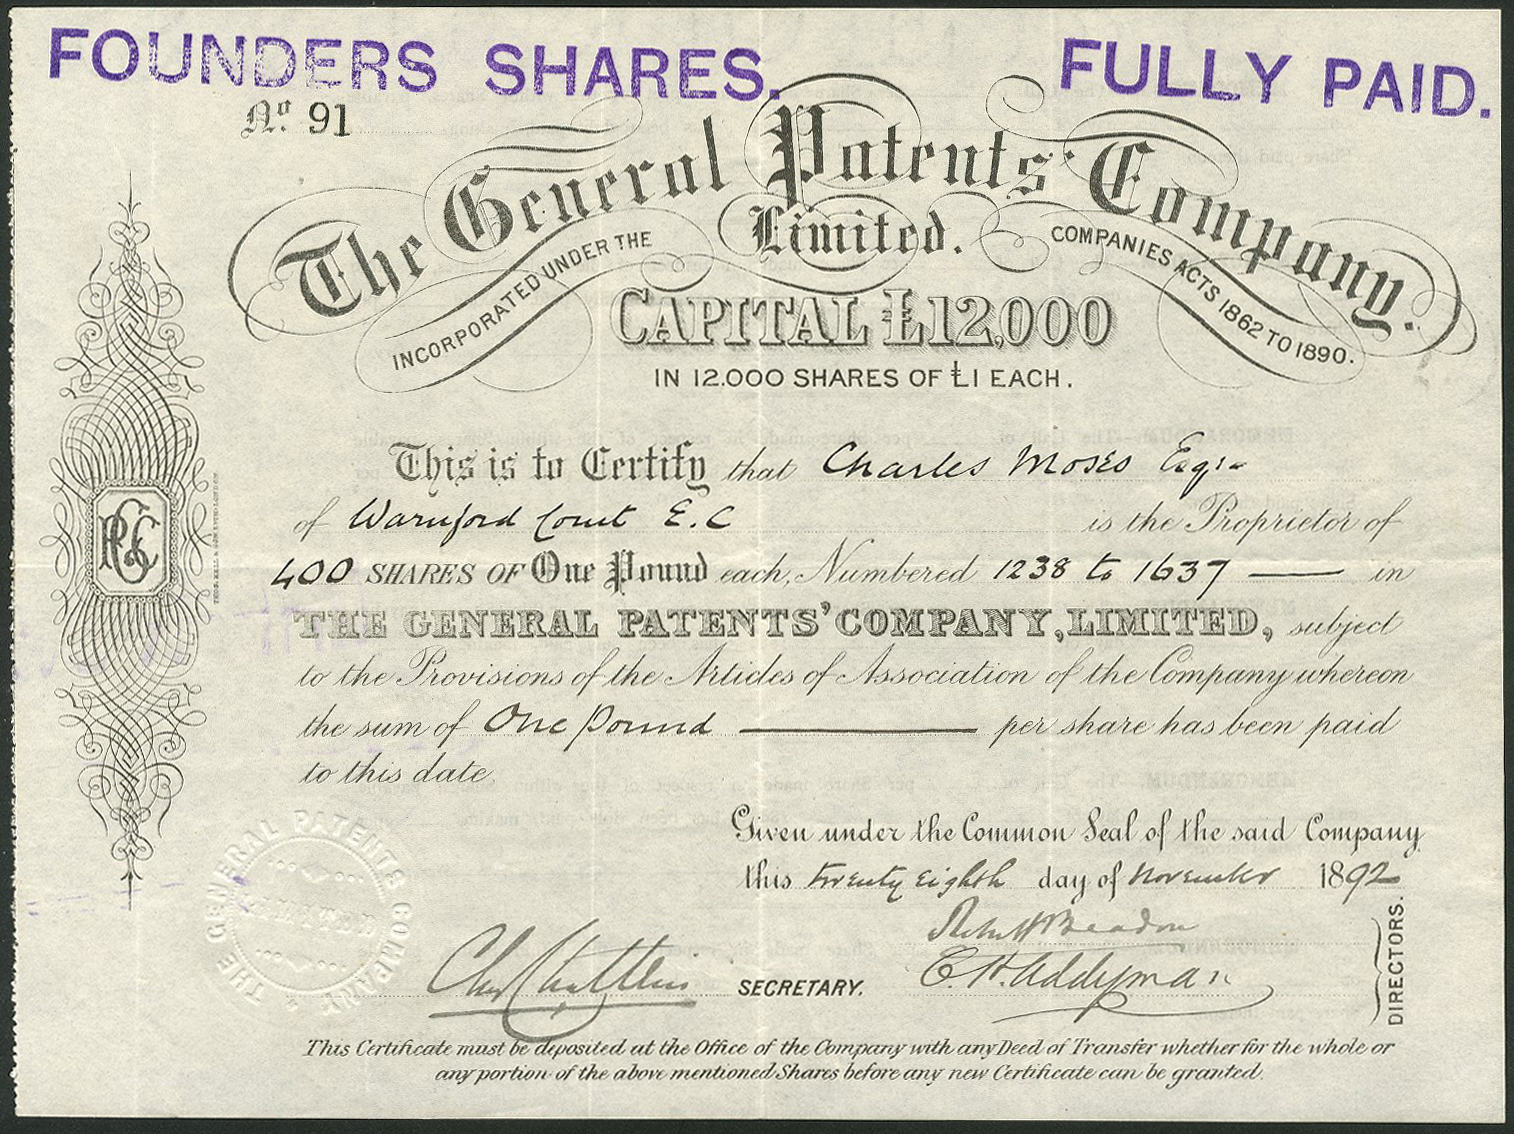 FOUNDERS SHARES. FULLY PAID.
No. 91
The General Patents' Company.
Limited.
INCORPORATED UNDER THE COMPANIES ACTS 1862 TO 1890.
CAPITAL £12,000
IN 12.000 SHARES OF £1 EACH.
This is to Certify that Charles Moses Esqr.
of Warnford Court E.C is the Proprietor of
400 SHARES OF One Pound each, Numbered 1238 to 1637 — in
THE GENERAL PATENTS' COMPANY, LIMITED, subject
to the Provisions of the Articles of Association of the Company whereon
the sum of One Pound — per share has been paid
to this date.
Given under the Common Seal of the said Company
this twenty eighth day of November 1892
SECRETARY. C. H. Addyman
DIRECTORS.
THE GENERAL PATENTS COMPANY
LIMITED
This Certificate must be deposited at the Office of the Company with any Deed of Transfer whether for the whole or
any portion of the above mentioned Shares before any new Certificate can be granted.